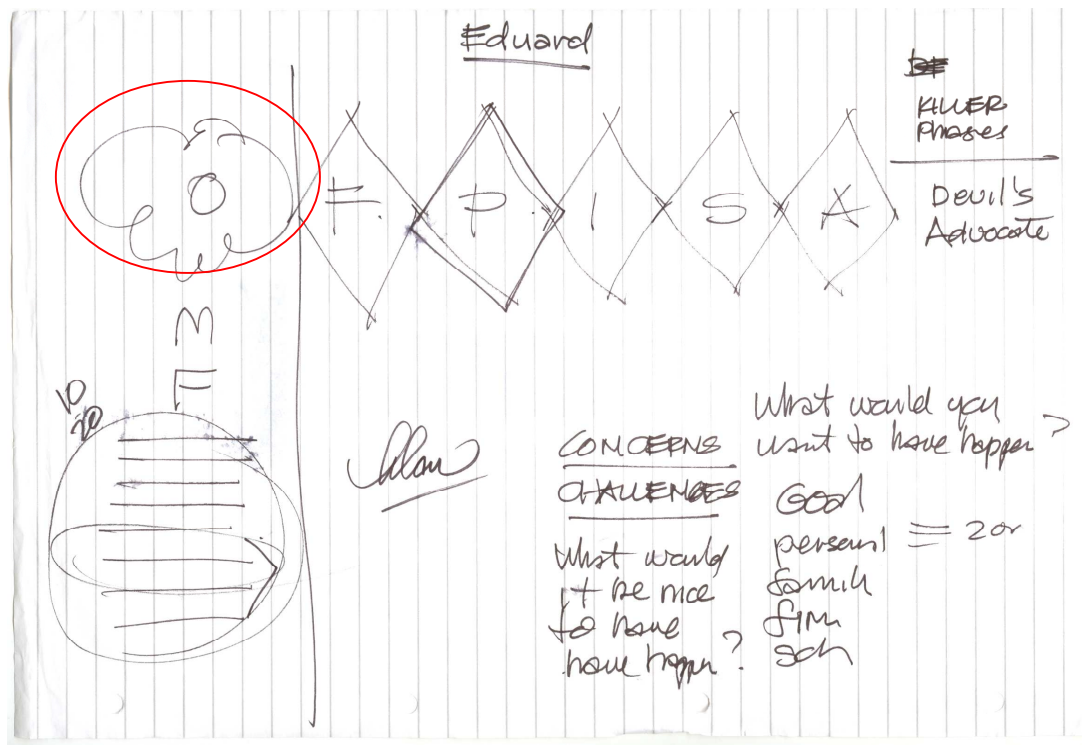 Eduard
KILLER
Phrases
Devil's
Advocate
O
F. P. I S A
M
E
10
20
Alan
CONCERNS
CHALLENGES
What would
it be nice
to have
have happen?
What would you
want to have happen?
Goal
personal = 2 or
famili
firm
sch